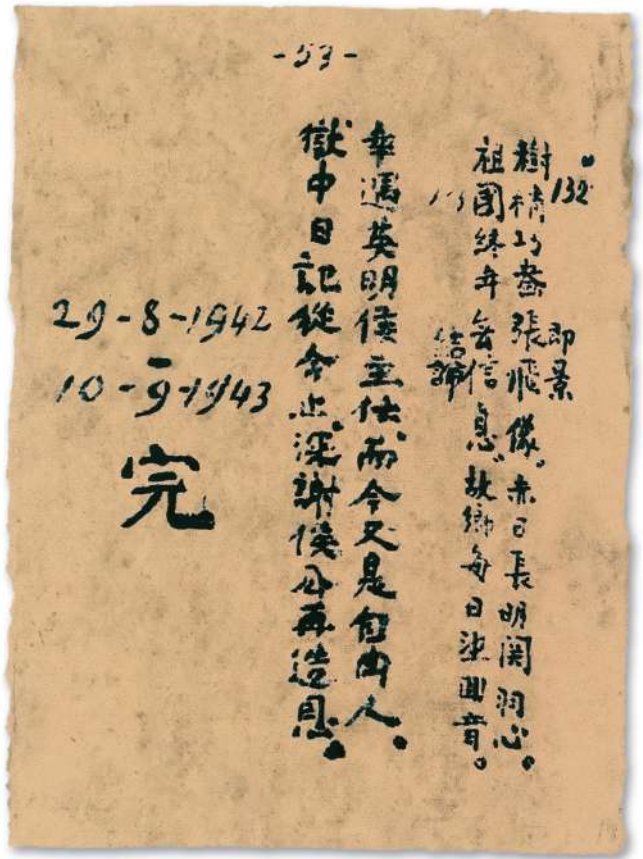 -53-
132 即景
樹梢巧畫張飛像。赤日長明関羽心。
祖國終年無信息。故鄉每日囬音。
結論
幸遇英明侯主任，而今又是自由人。
獄中日記從今止。深謝侯公再造恩。
29-8-1942
10-9-1943
完